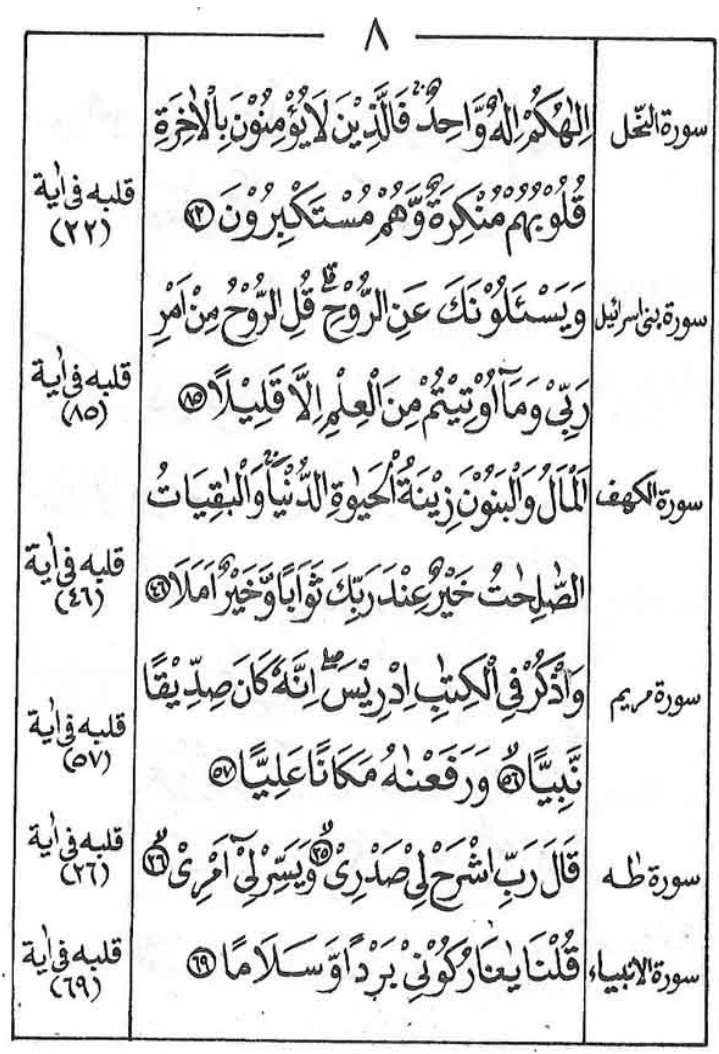 ٨
سورة النّحل
اِلٰهُكُمْ اِلٰهٌ وَّاحِدٌ ۚ فَالَّذِيْنَ لَا يُؤْمِنُوْنَ بِالْاٰخِرَةِ
قُلُوْبُهُمْ مُّنْكِرَةٌ وَّهُمْ مُّسْتَكْبِرُوْنَ ﴿٢٢﴾
قلبه فى اٰية
(٢٢)
سورة بنى اسرائيل
وَيَسْـَٔلُوْنَكَ عَنِ الرُّوْحِ ۗ قُلِ الرُّوْحُ مِنْ اَمْرِ
رَبِّيْ وَمَآ اُوْتِيْتُمْ مِنَ الْعِلْمِ اِلَّا قَلِيْلًا ﴿٨٥﴾
قلبه فى اٰية
(٨٥)
سورة الكهف
اَلْمَالُ وَالْبَنُوْنَ زِيْنَةُ الْحَيٰوةِ الدُّنْيَا ۚ وَالْبٰقِيَاتُ
الصّٰلِحٰتُ خَيْرٌ عِنْدَ رَبِّكَ ثَوَابًا وَّخَيْرٌ اَمَلًا ﴿٤٦﴾
قلبه فى اٰية
(٤٦)
سورة مريم
وَاذْكُرْ فِى الْكِتٰبِ اِدْرِيْسَ ۖ اِنَّهٗ كَانَ صِدِّيْقًا
نَّبِيًّا ﴿٥٦﴾ وَرَفَعْنٰهُ مَكَانًا عَلِيًّا ﴿٥٧﴾
قلبه فى اٰية
(٥٧)
سورة طٰه
قَالَ رَبِّ اشْرَحْ لِيْ صَدْرِىْ ﴿٢٥﴾ وَيَسِّرْ لِيْٓ اَمْرِىْ ﴿٢٦﴾
قلبه فى اٰية
(٢٦)
سورة الانبياء
قُلْنَا يٰنَارُ كُوْنِيْ بَرْدًا وَّسَلَامًا ﴿٦٩﴾
قلبه فى اٰية
(٦٩)